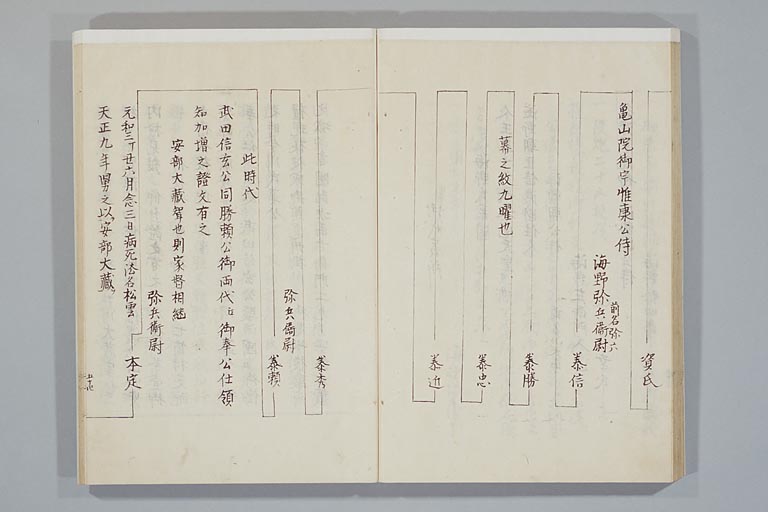 資氏
亀山院御宇惟康公侍
前名弥六
海野弥兵衛尉
泰信
泰勝
幕之紋九曜也
泰忠
泰近
泰秀
弥兵衛尉
泰頼
此時代
武田信玄公同勝頼公御両代ニ御奉公仕領
知加増之證文有之
安部大蔵聟也則家督相継
弥兵衛尉
本定
元和三丁巳六月念三日病死法名松雲
天正九年舅之以安部大蔵